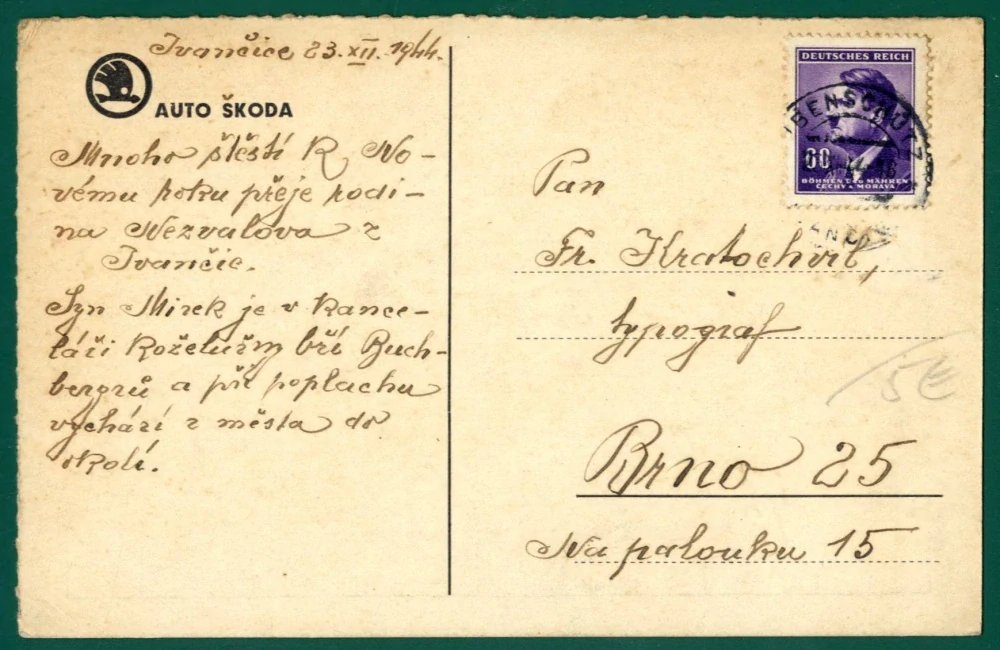 Ivančice 23.XII.1944.
AUTO ŠKODA
Mnoho štěstí k No-
vému roku přeje rodi-
na Nezvalova z
Ivančic.
Syn Mirek je v kance-
láři koželužny bří Buch-
bergrů a při poplachu
vychází z města do
okolí.
DEUTSCHES REICH
60
BÖHMEN UND MÄHREN
ČECHY A MORAVA
Pan
Fr. Kratochvil,
typograf
5€
Brno 25
Na palouku 15